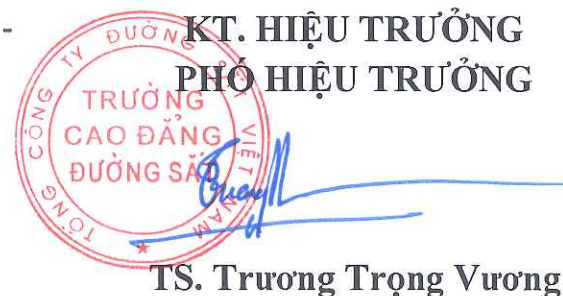 KT. HIỆU TRƯỞNG
PHÓ HIỆU TRƯỞNG
TỔNG CÔNG TY ĐƯỜNG SẮT VIỆT NAM
TRƯỜNG
CAO ĐẲNG
ĐƯỜNG SẮT
TS. Trương Trọng Vương